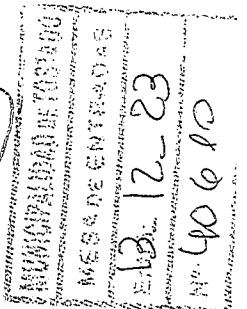 MUNICIPALIDAD DE TOSTADO
MESA DE ENTRADAS
13-12-23
Nº 40610